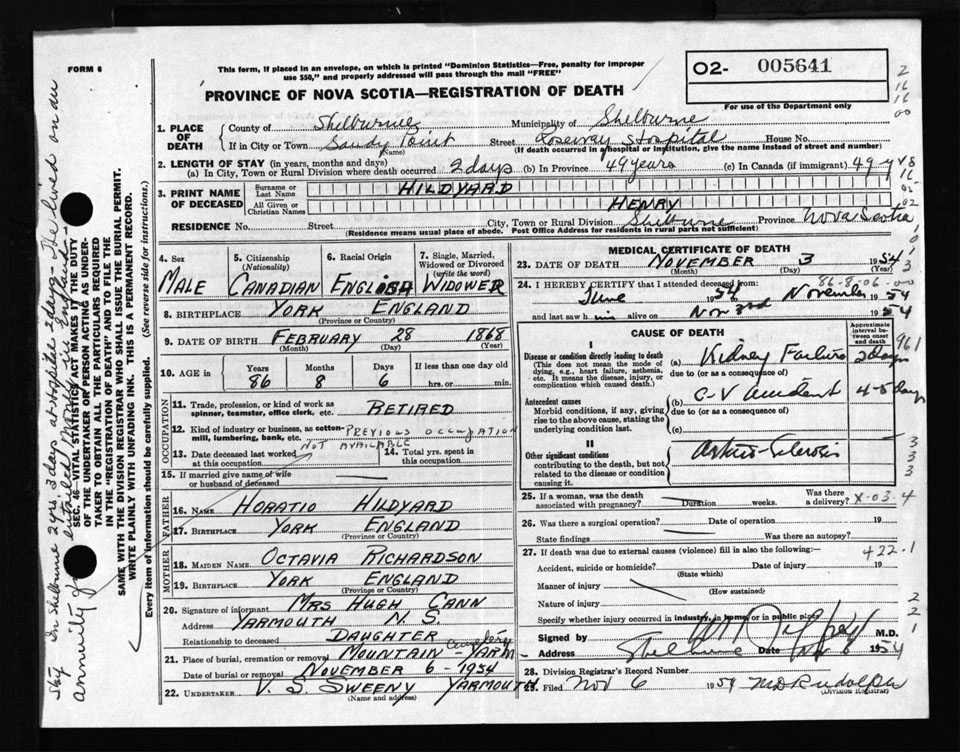 FORM 6
This form, if placed in an envelope, on which is printed "Dominion Statistics—Free, penalty for improper
use $50," and properly addressed will pass through the mail "FREE"
O2- 005641
For use of the Department only
PROVINCE OF NOVA SCOTIA—REGISTRATION OF DEATH
1. PLACE OF DEATH
County of Shelburne Municipality of Shelburne
If in City or Town Sandy Point Street Roseway Hospital House No.
(Name) (If death occurred in a hospital or institution, give the name instead of street and number)
2. LENGTH OF STAY (in years, months and days)
(a) In City, Town or Rural Division where death occurred 2 days (b) In Province 49 years (c) In Canada (if immigrant) 49 y
3. PRINT NAME OF DECEASED
Surname or Last Name HILDYARD
All Given or Christian Names HENRY
RESIDENCE No. Street City, Town or Rural Division Shelburne Province Nova Scotia
(Residence means usual place of abode. Post Office Address for residents in rural parts not sufficient)
4. Sex MALE
5. Citizenship (Nationality) CANADIAN
6. Racial Origin ENGLISH
7. Single, Married, Widowed or Divorced (write the word) WIDOWER
8. BIRTHPLACE YORK ENGLAND
(Province or Country)
9. DATE OF BIRTH FEBRUARY 28 1868
(Month) (Day) (Year)
10. AGE in Years 86 Months 8 Days 6 If less than one day hrs. or min.
OCCUPATION
11. Trade, profession, or kind of work as spinner, teamster, office clerk, etc. RETIRED
12. Kind of industry or business, as cotton-mill, lumbering, bank, etc. PREVIOUS OCCUPATION
NOT AVAILABLE
13. Date deceased last worked at this occupation
14. Total yrs. spent in this occupation
15. If married give name of wife or husband of deceased
FATHER
16. Name HORATIO HILDYARD
17. Birthplace YORK ENGLAND
(Province or Country)
MOTHER
18. MAIDEN NAME OCTAVIA RICHARDSON
19. BIRTHPLACE YORK ENGLAND
(Province or Country)
20. Signature of informant MRS HUGH CANN
Address YARMOUTH N.S.
Relationship to deceased DAUGHTER
21. Place of burial, cremation or removal MOUNTAIN Cemetery - YARM
Date of burial or removal NOVEMBER 6 - 1954
22. UNDERTAKER V. S. SWEENY YARMOUTH
(Name and address)
MEDICAL CERTIFICATE OF DEATH
23. DATE OF DEATH NOVEMBER 3 1954
(Month) (Day) (Year)
86-8-06
24. I HEREBY CERTIFY that I attended deceased from:
June 1954 to November 1954
and last saw him alive on Nov 3rd 1954
CAUSE OF DEATH
Approximate interval between onset and death
I
Disease or condition directly leading to death
(This does not mean the mode of dying, e.g., heart failure, asthenia, etc. It means the disease, injury, or complication which caused death.)
(a) Kidney Failure 2 days
due to (or as a consequence of)
Antecedent causes
Morbid conditions, if any, giving rise to the above cause, stating the underlying condition last.
(b) C-V accident 4-5 days
due to (or as a consequence of)
(c)
II
Other significant conditions
contributing to the death, but not related to the disease or condition causing it.
Arterio-Sclerosis
961
25. If a woman, was the death associated with pregnancy? Duration weeks. Was there a delivery?
X-03.4
26. Was there a surgical operation? Date of operation 19
State findings Was there an autopsy?
27. If death was due to external causes (violence) fill in also the following:—
422.1
Accident, suicide or homicide? Date of injury 19
(State which)
Manner of injury
(How sustained)
Nature of injury
Specify whether injury occurred in industry, in home, or in public place
Signed by M.D.
Address Shelburne Date Nov 6 1954
28. Division Registrar's Record Number
29. Filed Nov 6 1954 M D Rudolph
(Division Registrar)
Every item of information should be carefully supplied. (See reverse side for instructions).
WRITE PLAINLY WITH UNFADING INK. THIS IS A PERMANENT RECORD.
SAME WITH THE DIVISION REGISTRAR WHO SHALL ISSUE THE BURIAL PERMIT.
SEC. 46—VITAL STATISTICS ACT MAKES IT THE DUTY
OF THE UNDERTAKER OR PERSON ACTING AS UNDER-
TAKER TO OBTAIN ALL THE PARTICULARS REQUIRED
IN THE "REGISTRATION OF DEATH" AND TO FILE THE
Stay In Shelburne 2 yrs. 3 days at hospital 2 days - He lived on an
annuity from entailed in England -